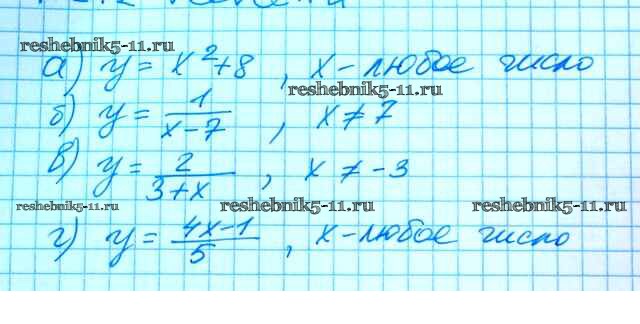 reshebnik5-11.ru
а) y = x²+8 , x - любое число
reshebnik5-11.ru
б) y = 1/(x-7) , x ≠ 7
в) y = 2/(3+x) , x ≠ -3
reshebnik5-11.ru reshebnik5-11.ru reshebnik5-11.ru
г) y = (4x-1)/5 , x - любое число